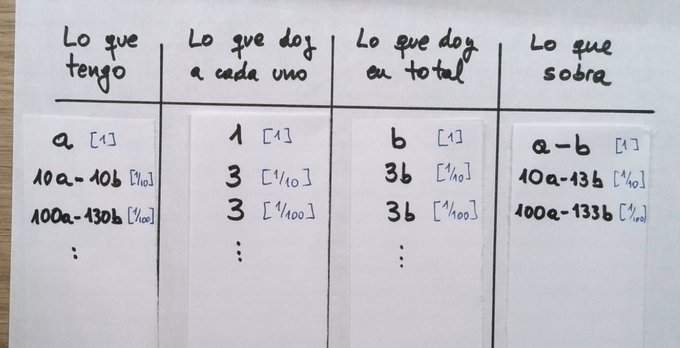 Lo que tengo | Lo que doy a cada uno | Lo que doy en total | Lo que sobra
a [1] | 1 [1] | b [1] | a-b [1]
10a-10b [1/10] | 3 [1/10] | 3b [1/10] | 10a-13b [1/10]
100a-130b [1/100] | 3 [1/100] | 3b [1/100] | 100a-133b [1/100]
⋮ | ⋮ | ⋮